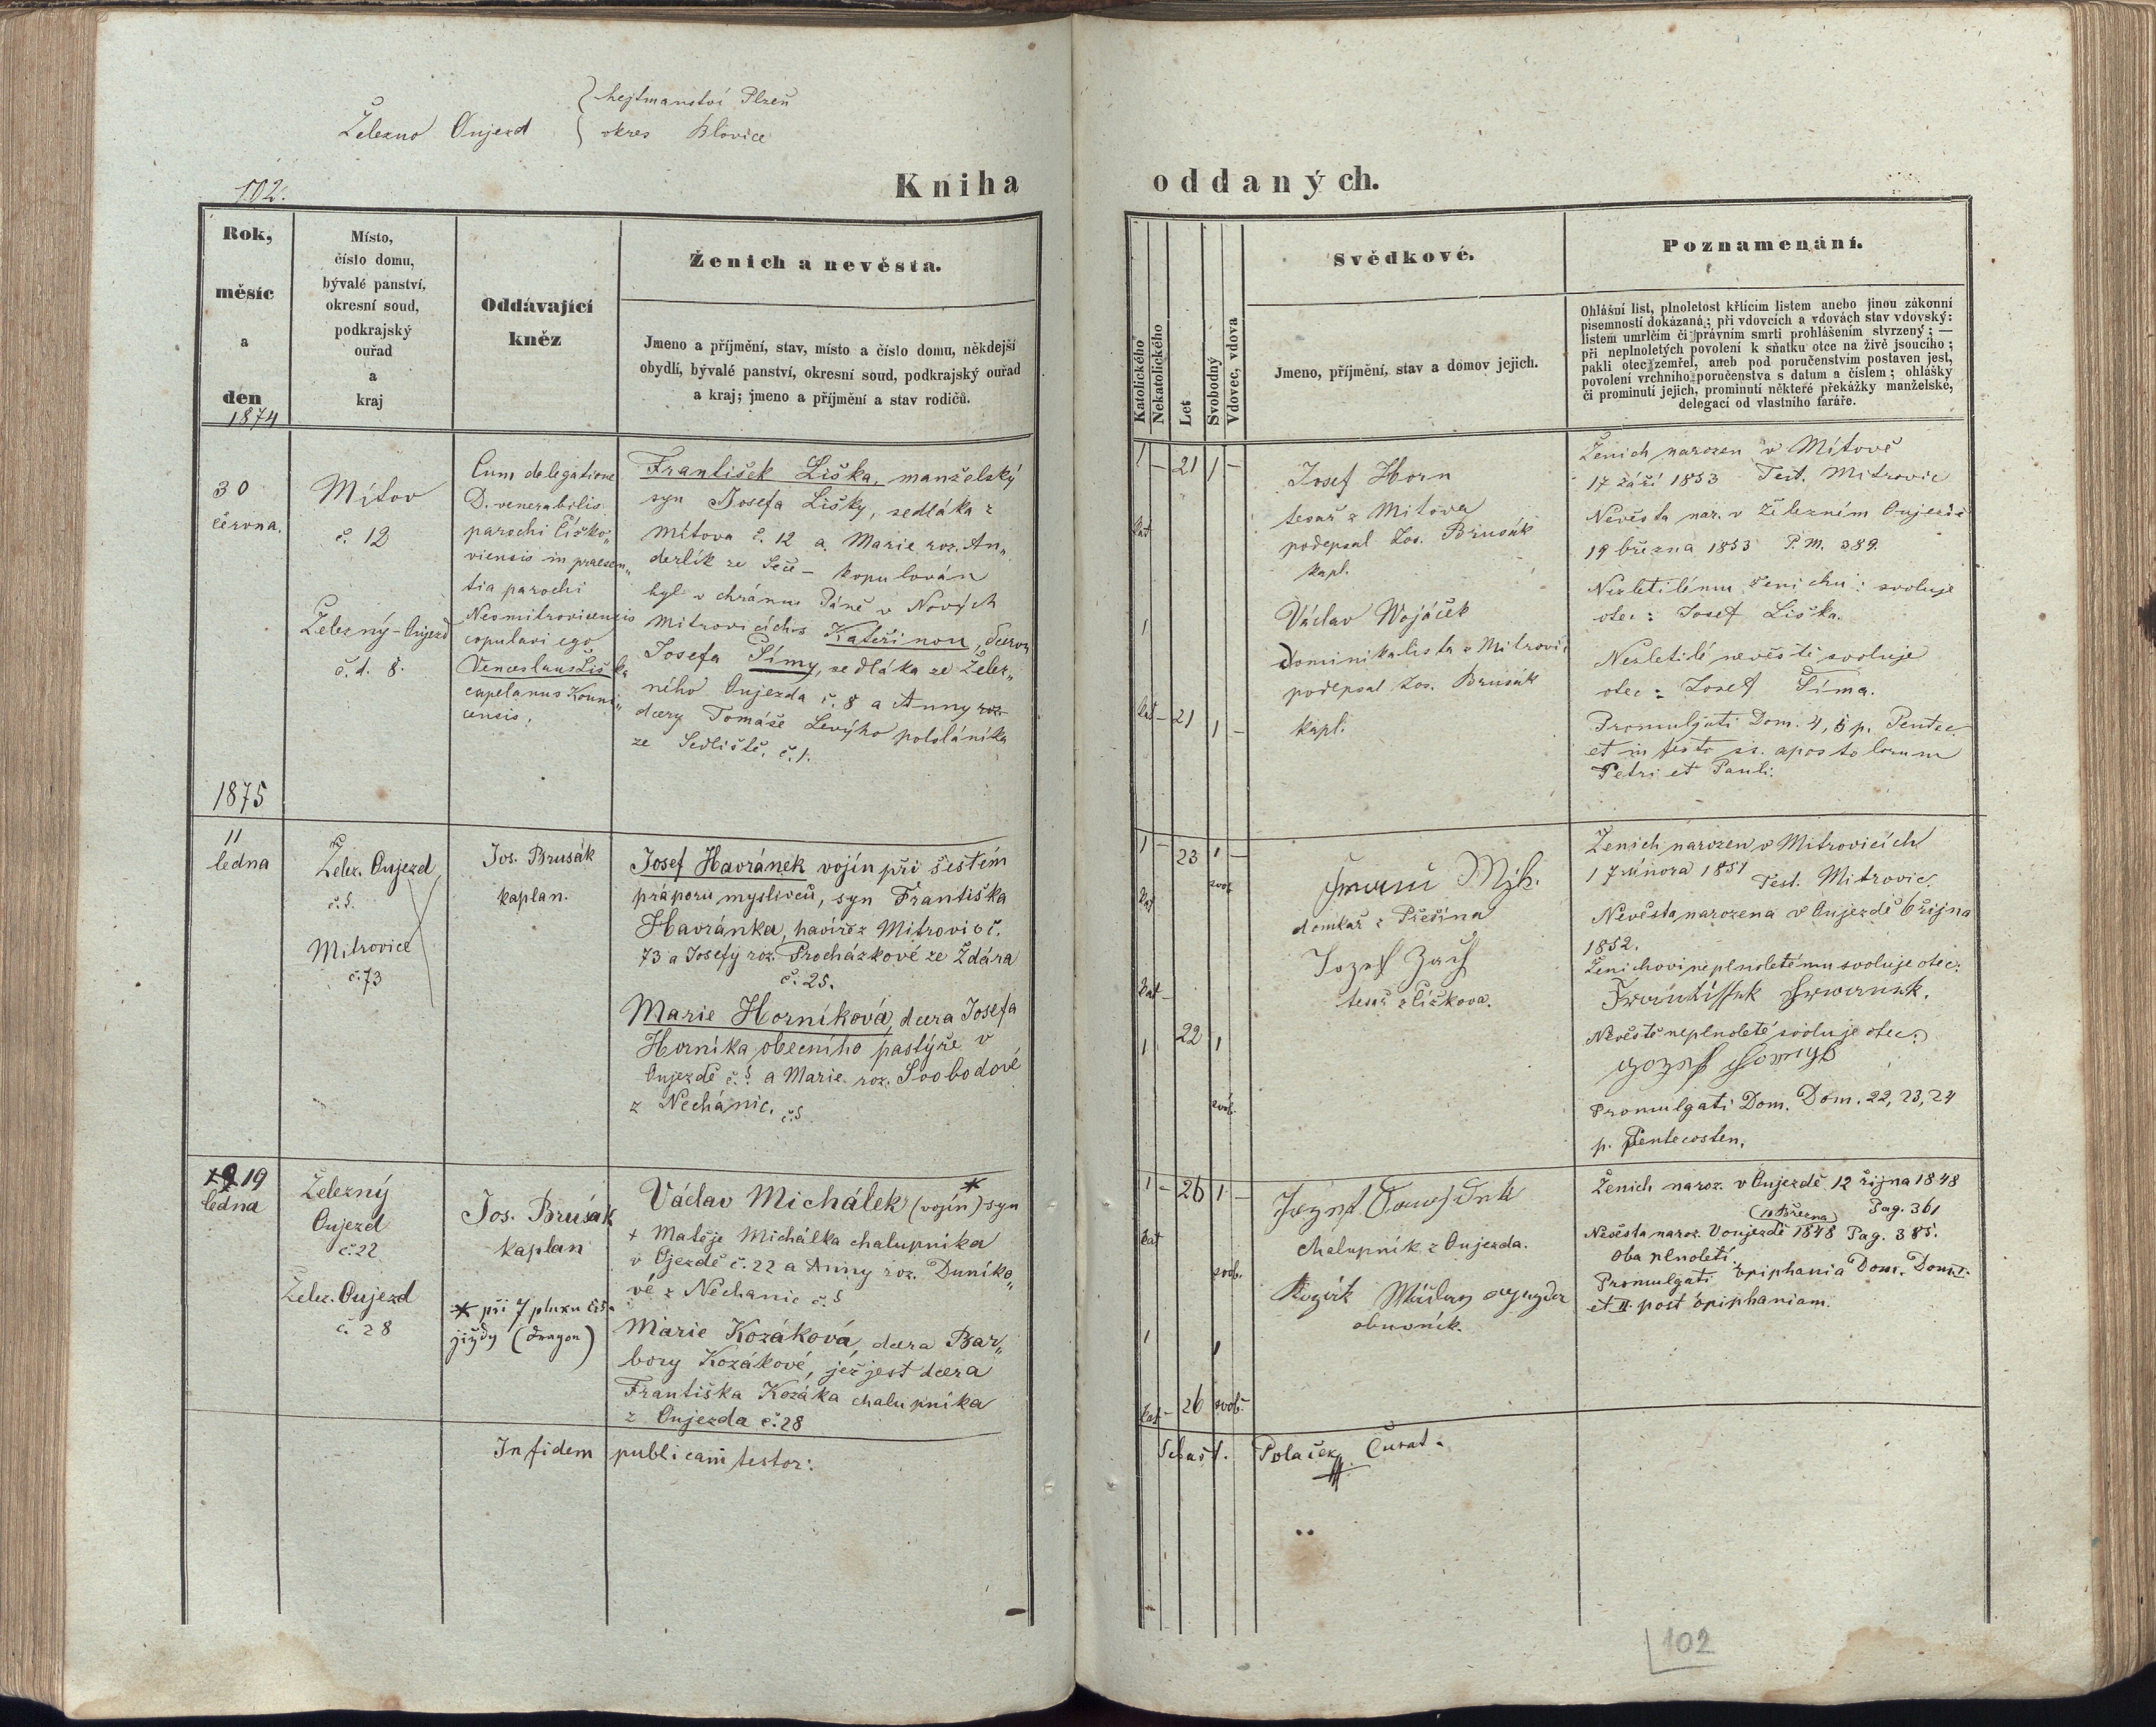 hejtmanství Plzeň
Železno Oujezd okres Blovice
102.
Kniha oddaných.
Rok,
měsíc
a
den
1874
Místo,
číslo domu,
bývalé panství,
okresní soud,
podkrajský
ouřad
a
kraj
Oddávající
kněz
Ženich a nevěsta.
Jmeno a příjmění, stav, místo a číslo domu, někdejší
obydlí, bývalé panství, okresní soud, podkrajský ouřad
a kraj; jmeno a příjmění a stav rodičů.
Katolického
Nekatolického
Let
Svobodný
Vdovec, vdova
Svědkové.
Jmeno, příjmění, stav a domov jejich.
Poznamenání.
Ohlášní list, plnoletost křtícím listem anebo jinou zákonní
písemností dokázaná; při vdovcích a vdovách stav vdovský:
listem umrlčím či právním smrti prohlášením stvrzený; —
při neplnoletých povolení k sňatku otce na živě jsoucího;
pakli otec zemřel, aneb pod poručenstvím postaven jest,
povolení vrchního poručenstva s datum a číslem; ohlášky
či prominutí jejich, prominutí některé překážky manželské,
delegací od vlastního faráře.
30
června.
Mítov
č. 12
Železný-Oujezd
č. d. 8.
Cum delegatione
D. venerabilis
parochi Číčko„
viensis in praesen„
tia parochi
Neomitrovicensis
copulavi ego
Venceslaus Liška
capelanus Kouni„
censis,
František Liška, manželský
syn Josefa Lišky, sedláka z
Mítova č. 12 a Marie roz. An„
derlík ze Seče – kopulován
byl v chrámu Páně v Nových
Mitrovicích s Kateřinou, dcerou
Josefa Šímy, sedláka ze Želez„
ného Oujezda č. 8 a Anny roz.
dcery Tomáše Levýho pololáníka
ze Sedliště. č. 1.
1 – 21 1 –
kat
1
kat – 21 1 –
Josef Horn
tesař z Mítova
podepsal Jos. Brusák
kapl.
Václav Wojáček
dominikalista z Mitrovic
podepsal Jos. Brusák
kapl.
Ženich narozen v Mítově
17 září 1853 Test. Mitrovic
Nevěsta nar. v Železném Oujezdě
19 března 1853 P. M. 389.
Nezletilému ženichu: svoluje
otec: Josef Liška.
Nezletilé nevěstě svoluje
otec: Josef Šíma.
Promulgati Dom. 4, 5 p. Pentec.
et in festo ss. apostolorum
Petri et Pauli.
1875
11
ledna
Želez. Oujezd
č. §.
Mitrovice
č. 73
Jos. Brusák
kaplan.
Josef Havránek vojín při šestém
práporu myslivců, syn Františka
Havránka, havíře z Mitrovic č.
73 a Josefy roz. Procházkové ze Ždára
č. 25.
Marie Horníková, dcera Josefa
Horníka obecního pastýře v
Oujezdě č. § a Marie roz. Svobodové
z Nechánic. č. §
1 – 23 1 –
kat svob.
kat –
1 22 1
svob.
domkař z Přešína
tesař z Číčkova.
Ženich narozen v Mitrovicích
17 února 1851 Test. Mitrovic.
Nevěsta narozena v Oujezdě 6 října
1852.
Ženichovi neplnoletému svoluje otec:
Nevěstě neplnoleté svoluje otec:
Promulgati Dom. Dom. 22, 23, 24
p. Pentecosten.
19
ledna
Železný
Oujezd
č. 22
Želez. Oujezd
č. 28
Jos. Brusák
kaplan
* při 7 pluku
jízdy (dragon)
Václav Michálek (vojín)* syn
+ Matěje Michálka chalupníka
v Ojezdě č. 22 a Anny roz. Duníko„
vé z Nechanic č. §
Marie Kozáková, dcera Bar„
bory Kozákové, jež jest dcera
Františka Kozáka chalupníka
z Oujezda č. 28
1 – 26 1 –
kat svob.
1 1
kat – 26 svob.
chalupník z Oujezda.
obuvník.
Ženich naroz. v Oujezdě 12 října 1848
Pag. 361
(10 Března)
Nevěsta naroz. v Oujezdě 1848 Pag. 385.
Oba plnoletí.
Promulgati Epiphania Dom. Dom. I.
et II. post Epiphaniam.
In fidem publicam testor:
Sebast. Polaček Curat.
102